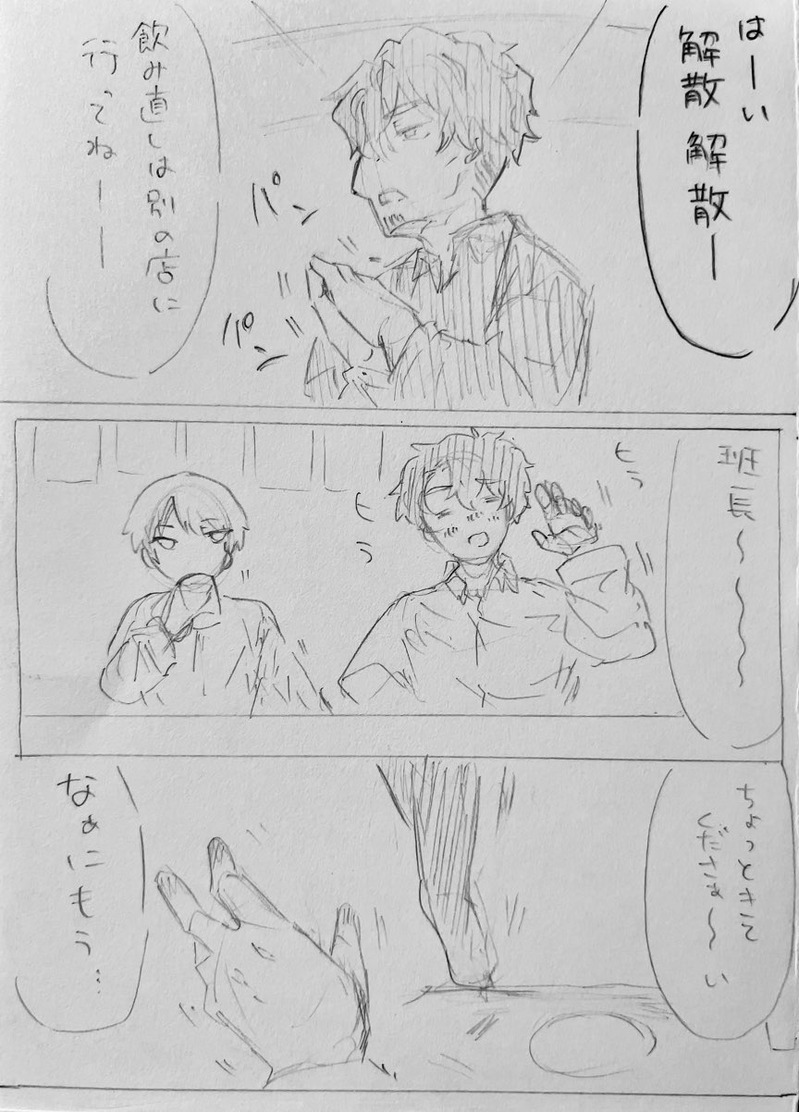 はーい
解散 解散ー
パン
パン
飲み直しは別の店に
行ってねーー
班長〜〜〜〜
ヒラ
ヒラ
ちょっときて
くださぁ〜い
なぁにもう…